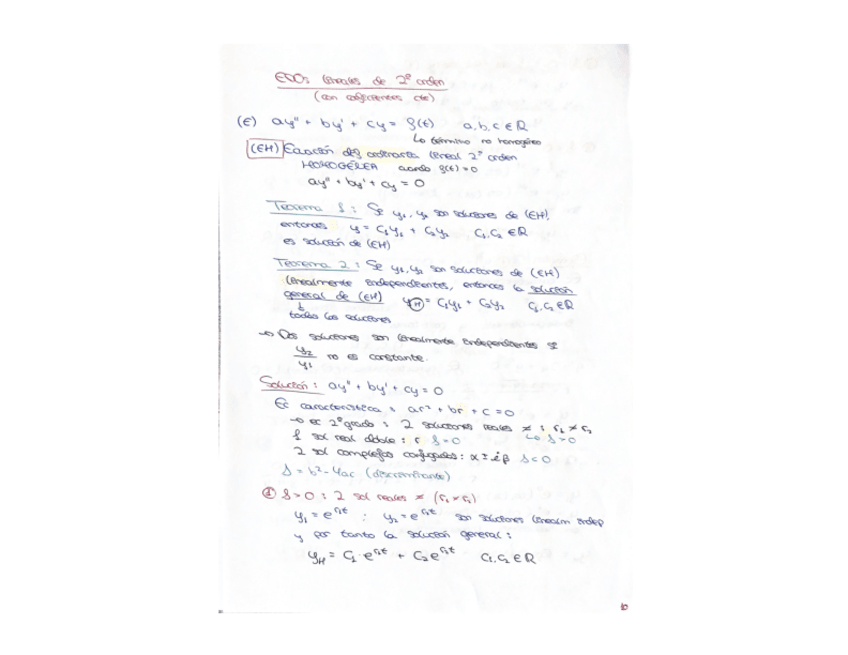 EDOs lineales de 2º orden
(con coeficientes cte)
(E) ay'' + by' + cy = g(t) a, b, c ∈ ℝ
↳ término no homogéneo
(EH) Ecuación ordinaria lineal 2º orden
HOMOGÉNEA cuando g(t) = 0
ay'' + by' + cy = 0
Teorema 1: Si y₁, y₂ son soluciones de (EH),
entonces y = C₁y₁ + C₂y₂ C₁, C₂ ∈ ℝ
es solución de (EH)
Teorema 2: Si y₁, y₂ son soluciones de (EH)
linealmente independientes, entonces la solución
general de (EH) y_H = C₁y₁ + C₂y₂ C₁, C₂ ∈ ℝ
todas las soluciones
→ Dos soluciones son linealmente independientes si
y₂/y₁ no es constante.
Solución: ay'' + by' + cy = 0
Ec característica: ar² + br + c = 0
→ ec 2º grado: 2 soluciones reales ≠: r₁ ≠ r₂
1 sol real doble: r Δ = 0 ↳ Δ > 0
2 sol complejas conjugadas: α ± iβ Δ < 0
Δ = b² - 4ac (discriminante)
① Δ > 0: 2 sol reales ≠ (r₁ ≠ r₂)
y₁ = e^{r₁t} ; y₂ = e^{r₂t} son soluciones linealm indep
y por tanto la solución general:
y_H = C₁ · e^{r₁t} + C₂ e^{r₂t} C₁, C₂ ∈ ℝ